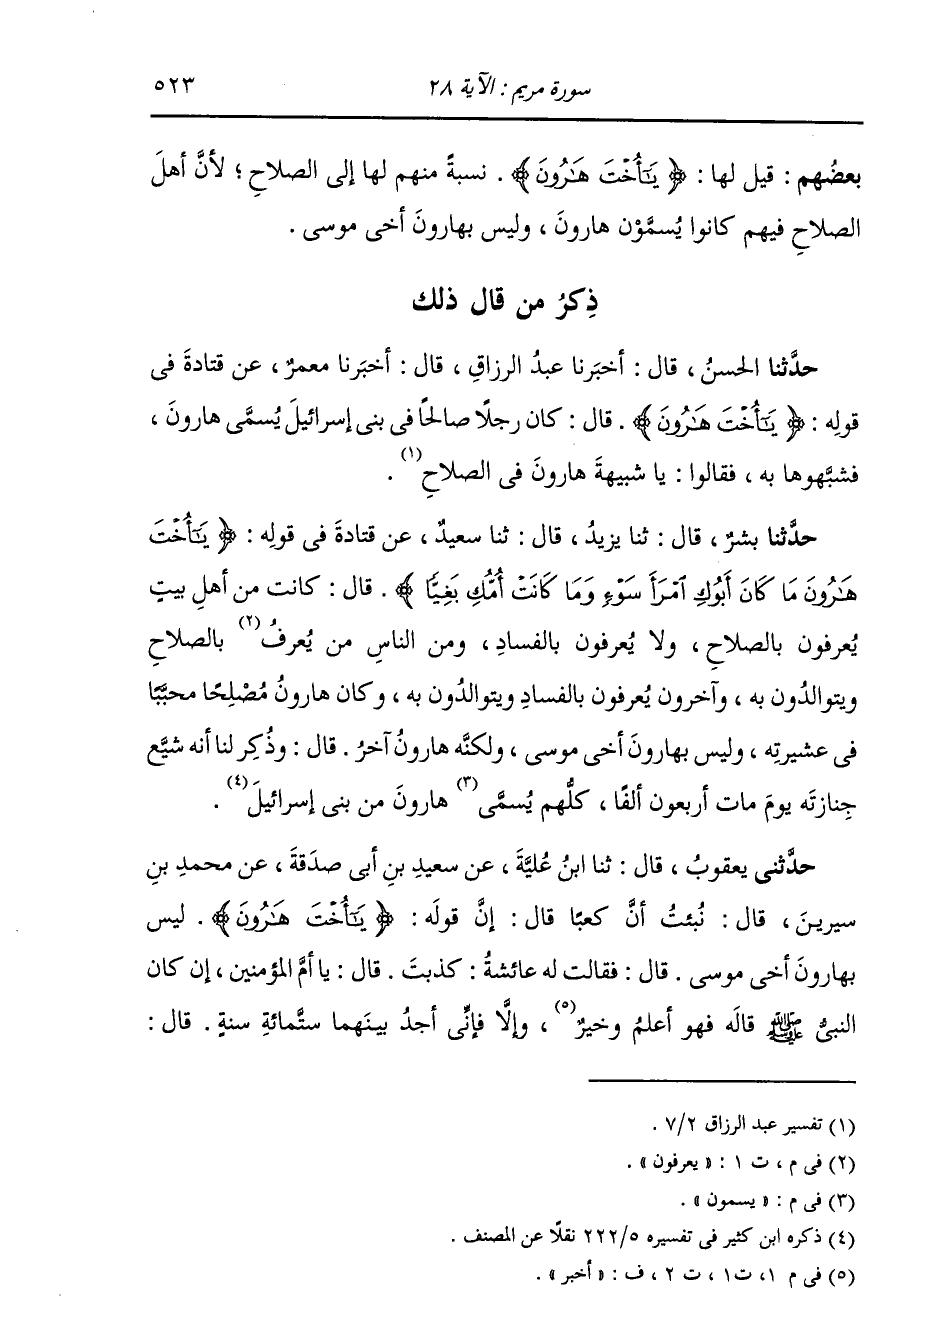 سورة مريم : الآية ٢٨ ٥٢٣
بعضُهم : قيل لها : ﴿ يَٰٓأُخْتَ هَٰرُونَ ﴾ . نسبةً منهم لها إلى الصلاحِ ؛ لأنَّ أهلَ
الصلاحِ فيهم كانوا يُسمَّوْن هارونَ ، وليس بهارونَ أخى موسى .
ذِكرُ من قال ذلك
حدَّثنا الحسنُ ، قال : أخبَرنا عبدُ الرزاقِ ، قال : أخبَرنا معمرٌ ، عن قتادةَ فى
قولِه : ﴿ يَٰٓأُخْتَ هَٰرُونَ ﴾ . قال : كان رجلًا صالحًا فى بنى إسرائيلَ يُسمَّى هارونَ ،
فشبَّهوها به ، فقالوا : يا شبيهةَ هارونَ فى الصلاحِ (١) .
حدَّثنا بشرٌ ، قال : ثنا يزيدُ ، قال : ثنا سعيدٌ ، عن قتادةَ فى قولِه : ﴿ يَٰٓأُخْتَ
هَٰرُونَ مَا كَانَ أَبُوكِ ٱمْرَأَ سَوْءٍ وَمَا كَانَتْ أُمُّكِ بَغِيًّا ﴾ . قال : كانت من أهلِ بيتٍ
يُعرفون بالصلاحِ ، ولا يُعرفون بالفسادِ ، ومن الناسِ من يُعرفُ (٢) بالصلاحِ
ويتوالدُون به ، وآخرون يُعرفون بالفسادِ ويتوالدُون به ، وكان هارونُ مُصْلِحًا محبَّبًا
فى عشيرتِه ، وليس بهارونَ أخى موسى ، ولكنَّه هارونُ آخرُ . قال : وذُكِر لنا أنه شيَّع
جِنازتَه يومَ مات أربعون ألفًا ، كلُّهم يُسمَّى (٣) هارونَ من بنى إسرائيلَ (٤) .
حدَّثنى يعقوبُ ، قال : ثنا ابنُ عُليَّةَ ، عن سعيدِ بنِ أبى صدَقةَ ، عن محمدِ بنِ
سيرينَ ، قال : نُبئتُ أنَّ كعبًا قال : إنَّ قولَه : ﴿ يَٰٓأُخْتَ هَٰرُونَ ﴾ . ليس
بهارونَ أخى موسى . قال : فقالت له عائشةُ : كذبتَ . قال : يا أمَّ المؤمنين ، إن كان
النبىُّ ﷺ قالَه فهو أعلمُ وخيرٌ (٥) ، وإلَّا فإنِّى أجدُ بينَهما ستَّمائةِ سنةٍ . قال :
(١) تفسير عبد الرزاق ٧/٢ .
(٢) فى م ، ت ١ : « يعرفون » .
(٣) فى م : « يسمون » .
(٤) ذكره ابن كثير فى تفسيره ٢٢٢/٥ نقلًا عن المصنف .
(٥) فى م ١، ت١ ، ت ٢ ، ف : « أخبر » .